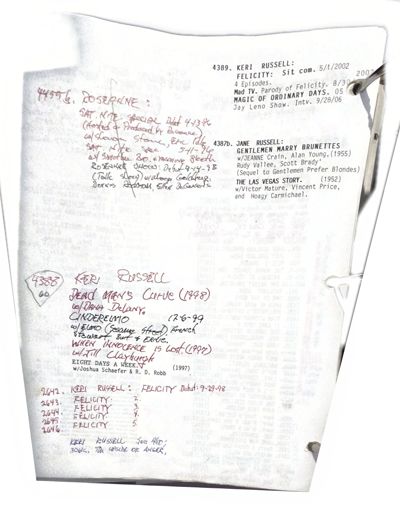 4389. KERI RUSSELL:
FELICITY: Sit com. 5/1/2002
4 Episodes. 2002
Mad TV. Parody of Felicity. 8/30
MAGIC OF ORDINARY DAYS. 05
Jay Leno Show. Intv. 9/28/06
ROSEANNE:
SAT NITE SPECIAL Debut
(Hosted & Produced by Roseanne)
w/Sharon Stone, Eric Idle
SAT. NITE
ROSEANNE SHOW: Debut 9-14-98
(Talk Show) w/Whoopi Goldberg,
4387b. JANE RUSSELL:
GENTLEMEN MARRY BRUNETTES
w/JEANNE Crain, Alan Young.(1955)
Rudy Vallee, Scott Brady
(Sequel to Gentlemen Prefer Blondes)
THE LAS VEGAS STORY. (1952)
w/Victor Mature, Vincent Price,
and Hoagy Carmichael.
4388 KERI RUSSELL
DEAD MAN'S Curve (1998)
w/DANA Delany.
CINDERELMO 12-6-99
w/ELMO (Sesame Street) French
Stewart
WHEN INNOCENCE is Lost (1997)
w/Jill Clayburgh
EIGHT DAYS A WEEK
w/Joshua Schaefer & R. D. Robb (1997)
2642. KERI RUSSELL: FELICITY Debut: 9-29-98
2643. FELICITY 2
2644. FELICITY 3
2645. FELICITY 4
2646. FELICITY 5
KERI RUSSELL